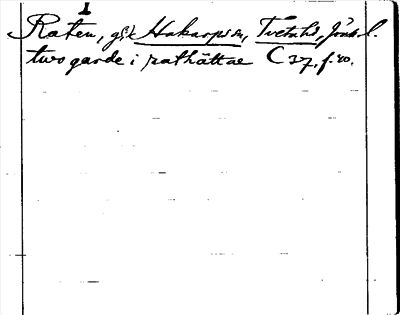 1
Raten, gd i Hakarps sn, Tveta hd, Jönk. l.
two garde i rathåttæ C 37, f. 20.